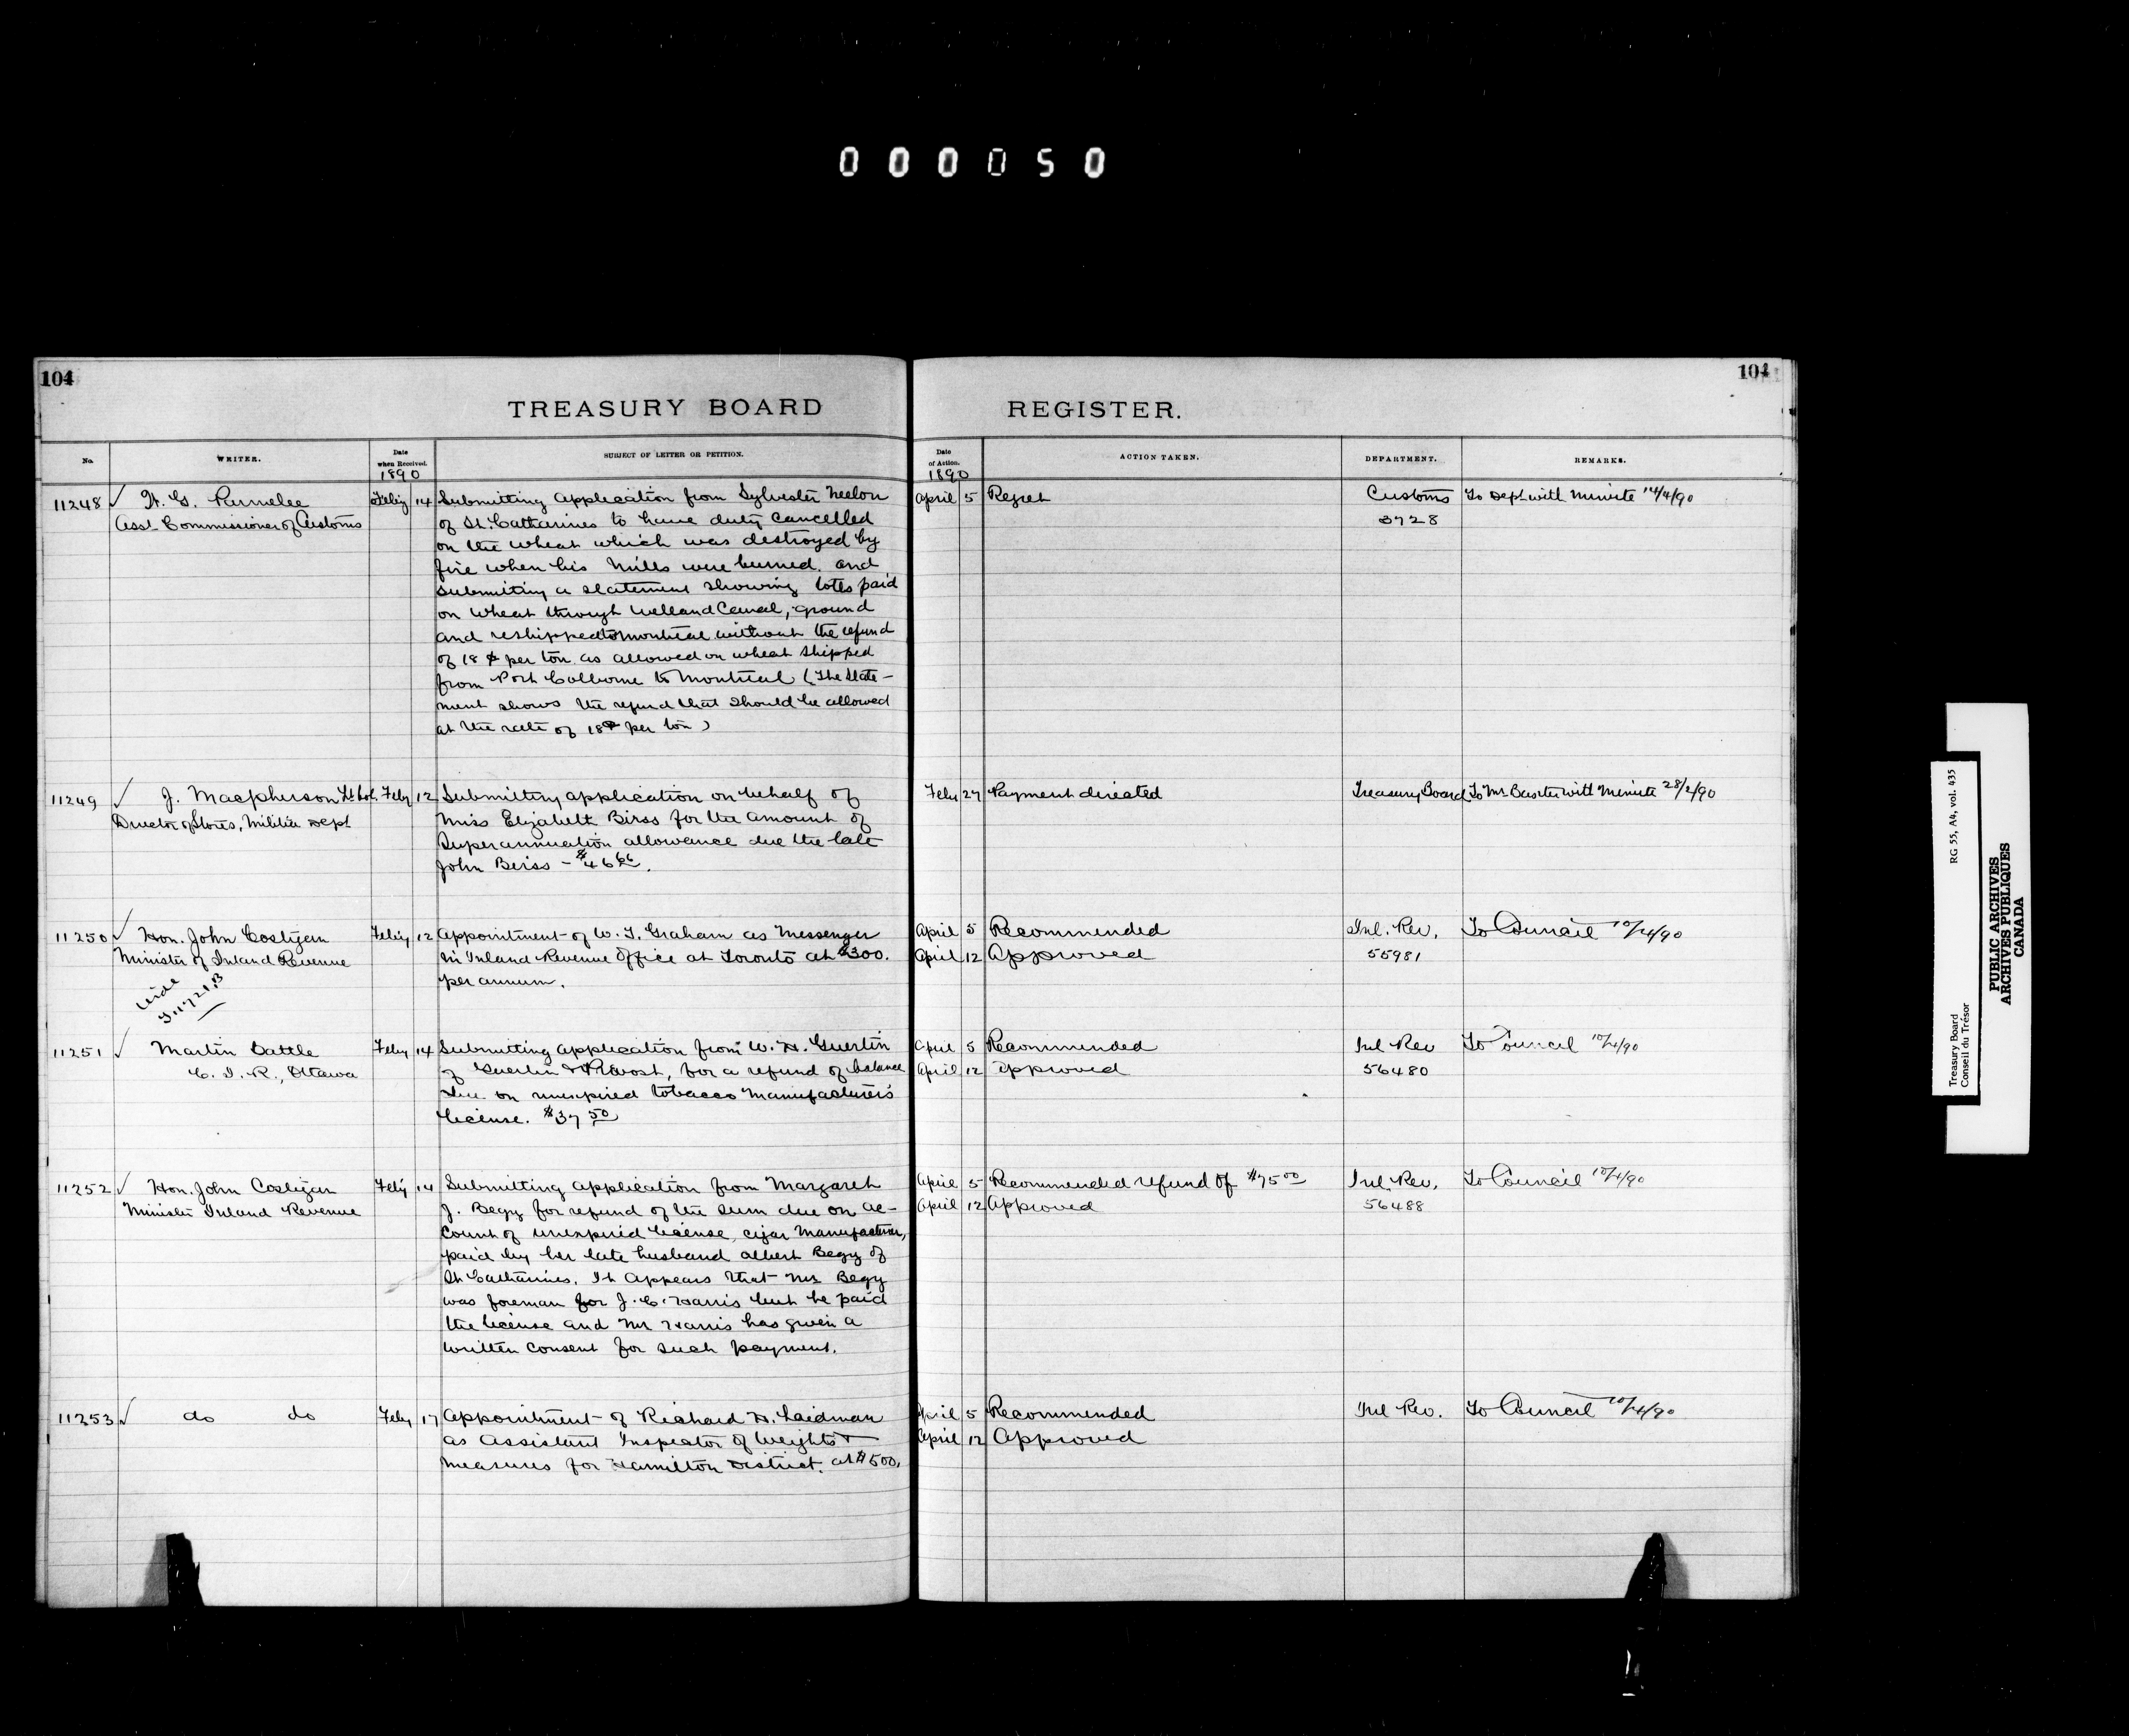 000050
104
104
TREASURY BOARD REGISTER.
No. WRITER. Date when Received. SUBJECT OF LETTER OR PETITION. Date of Action. ACTION TAKEN. DEPARTMENT. REMARKS.
1890 1890
11248 ✓ W. G. Parmelee Feby 14 Submitting application from Sylvester Neelon April 5 Regret Customs To Dept with Minute 14/4/90
Asst Commissioner of Customs of St. Catharines to have duty cancelled 3728
on the wheat which was destroyed by
fire when his Mills were burned. and
submitting a statement showing tolls paid
on wheat through Welland Canal, ground
and reshipped to Montreal without the refund
of 18 ¢ per ton as allowed on wheat shipped
from Port Colborne to Montreal (The State-
ment shows the refund that should be allowed
at the rate of 18¢ per ton)
11249 ✓ J. Macpherson Lt Col. Feby 12 Submitting application on behalf of Feby 27 Payment directed Treasury Board To Mr with Minute 28/2/90
Director of Stores, Militia Dept Miss Elizabeth Birss for the amount of
Superannuation allowance due the late
John Birss - $46 66.
11250 ✓ Hon. John Costigan Feby 12 Appointment of W. T. Graham as Messenger April 5 Recommended Inl. Rev. To Council 10/4/90
Minister of Inland Revenue in Inland Revenue Office at Toronto at $300. April 12 Approved 55981
per annum.
Vide
11251 ✓ Martin Battle Feby 14 Submitting application from W. H. Guerlin April 5 Recommended Inl Rev To Council 10/4/90
C. I. R., Ottawa of Guerlin & Provost, for a refund of balance April 12 Approved 56480
due on unexpired tobacco manufacturers
license. $37 50
11252 ✓ Hon. John Costigan Feby 14 Submitting application from Margaret April 5 Recommended refund of $75 00 Inl. Rev. To Council 10/4/90
Minister Inland Revenue J. Begy for refund of the sum due on ac- April 12 Approved 56488
count of unexpired license, cigar manufacture,
paid by her late husband Albert Begy of
St Catharines. It appears that Mr Begy
was foreman for J. C. Harris but he paid
the license and Mr Harris has given a
written consent for such payment.
11253 ✓ do do Feby 17 Appointment of Richard H. Laidman April 5 Recommended Inl Rev. To Council 10/4/90
as Assistant Inspector of Weights & April 12 Approved
Measures for Hamilton District. at $500.
Treasury Board RG 55, A4, vol. 435
Conseil du Trésor
PUBLIC ARCHIVES
ARCHIVES PUBLIQUES
CANADA